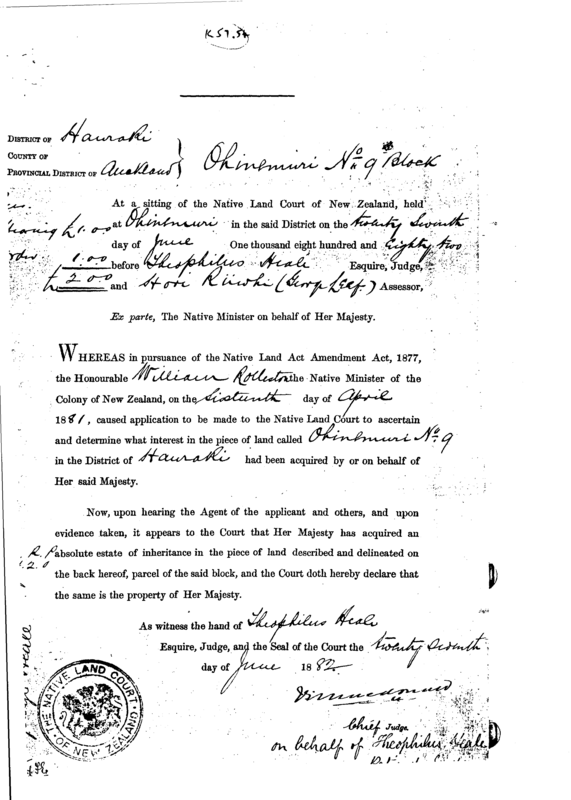 K 57.54
DISTRICT OF Hauraki
COUNTY OF
PROVINCIAL DISTRICT OF Auckland
Ohinemuri No 9 Block
At a sitting of the Native Land Court of New Zealand, held
£1.00 at Ohinemuri in the said District on the twenty Seventh
day of June One thousand eight hundred and Eighty two
1.00 before Theophilus Heale Esquire, Judge,
2.00 and Hori Riiwhi (George Leaf) Assessor,
Ex parte, The Native Minister on behalf of Her Majesty.
WHEREAS in pursuance of the Native Land Act Amendment Act, 1877,
the Honourable William Rolleston the Native Minister of the
Colony of New Zealand, on the Sixteenth day of April
1881, caused application to be made to the Native Land Court to ascertain
and determine what interest in the piece of land called Ohinemuri No 9
in the District of Hauraki had been acquired by or on behalf of
Her said Majesty.
Now, upon hearing the Agent of the applicant and others, and upon
evidence taken, it appears to the Court that Her Majesty has acquired an
absolute estate of inheritance in the piece of land described and delineated on
the back hereof, parcel of the said block, and the Court doth hereby declare that
the same is the property of Her Majesty.
As witness the hand of Theophilus Heale
Esquire, Judge, and the Seal of the Court the twenty Seventh
day of June 1882
Chief Judge
on behalf of Theophilus Heale
THE NATIVE LAND COURT OF NEW ZEALAND